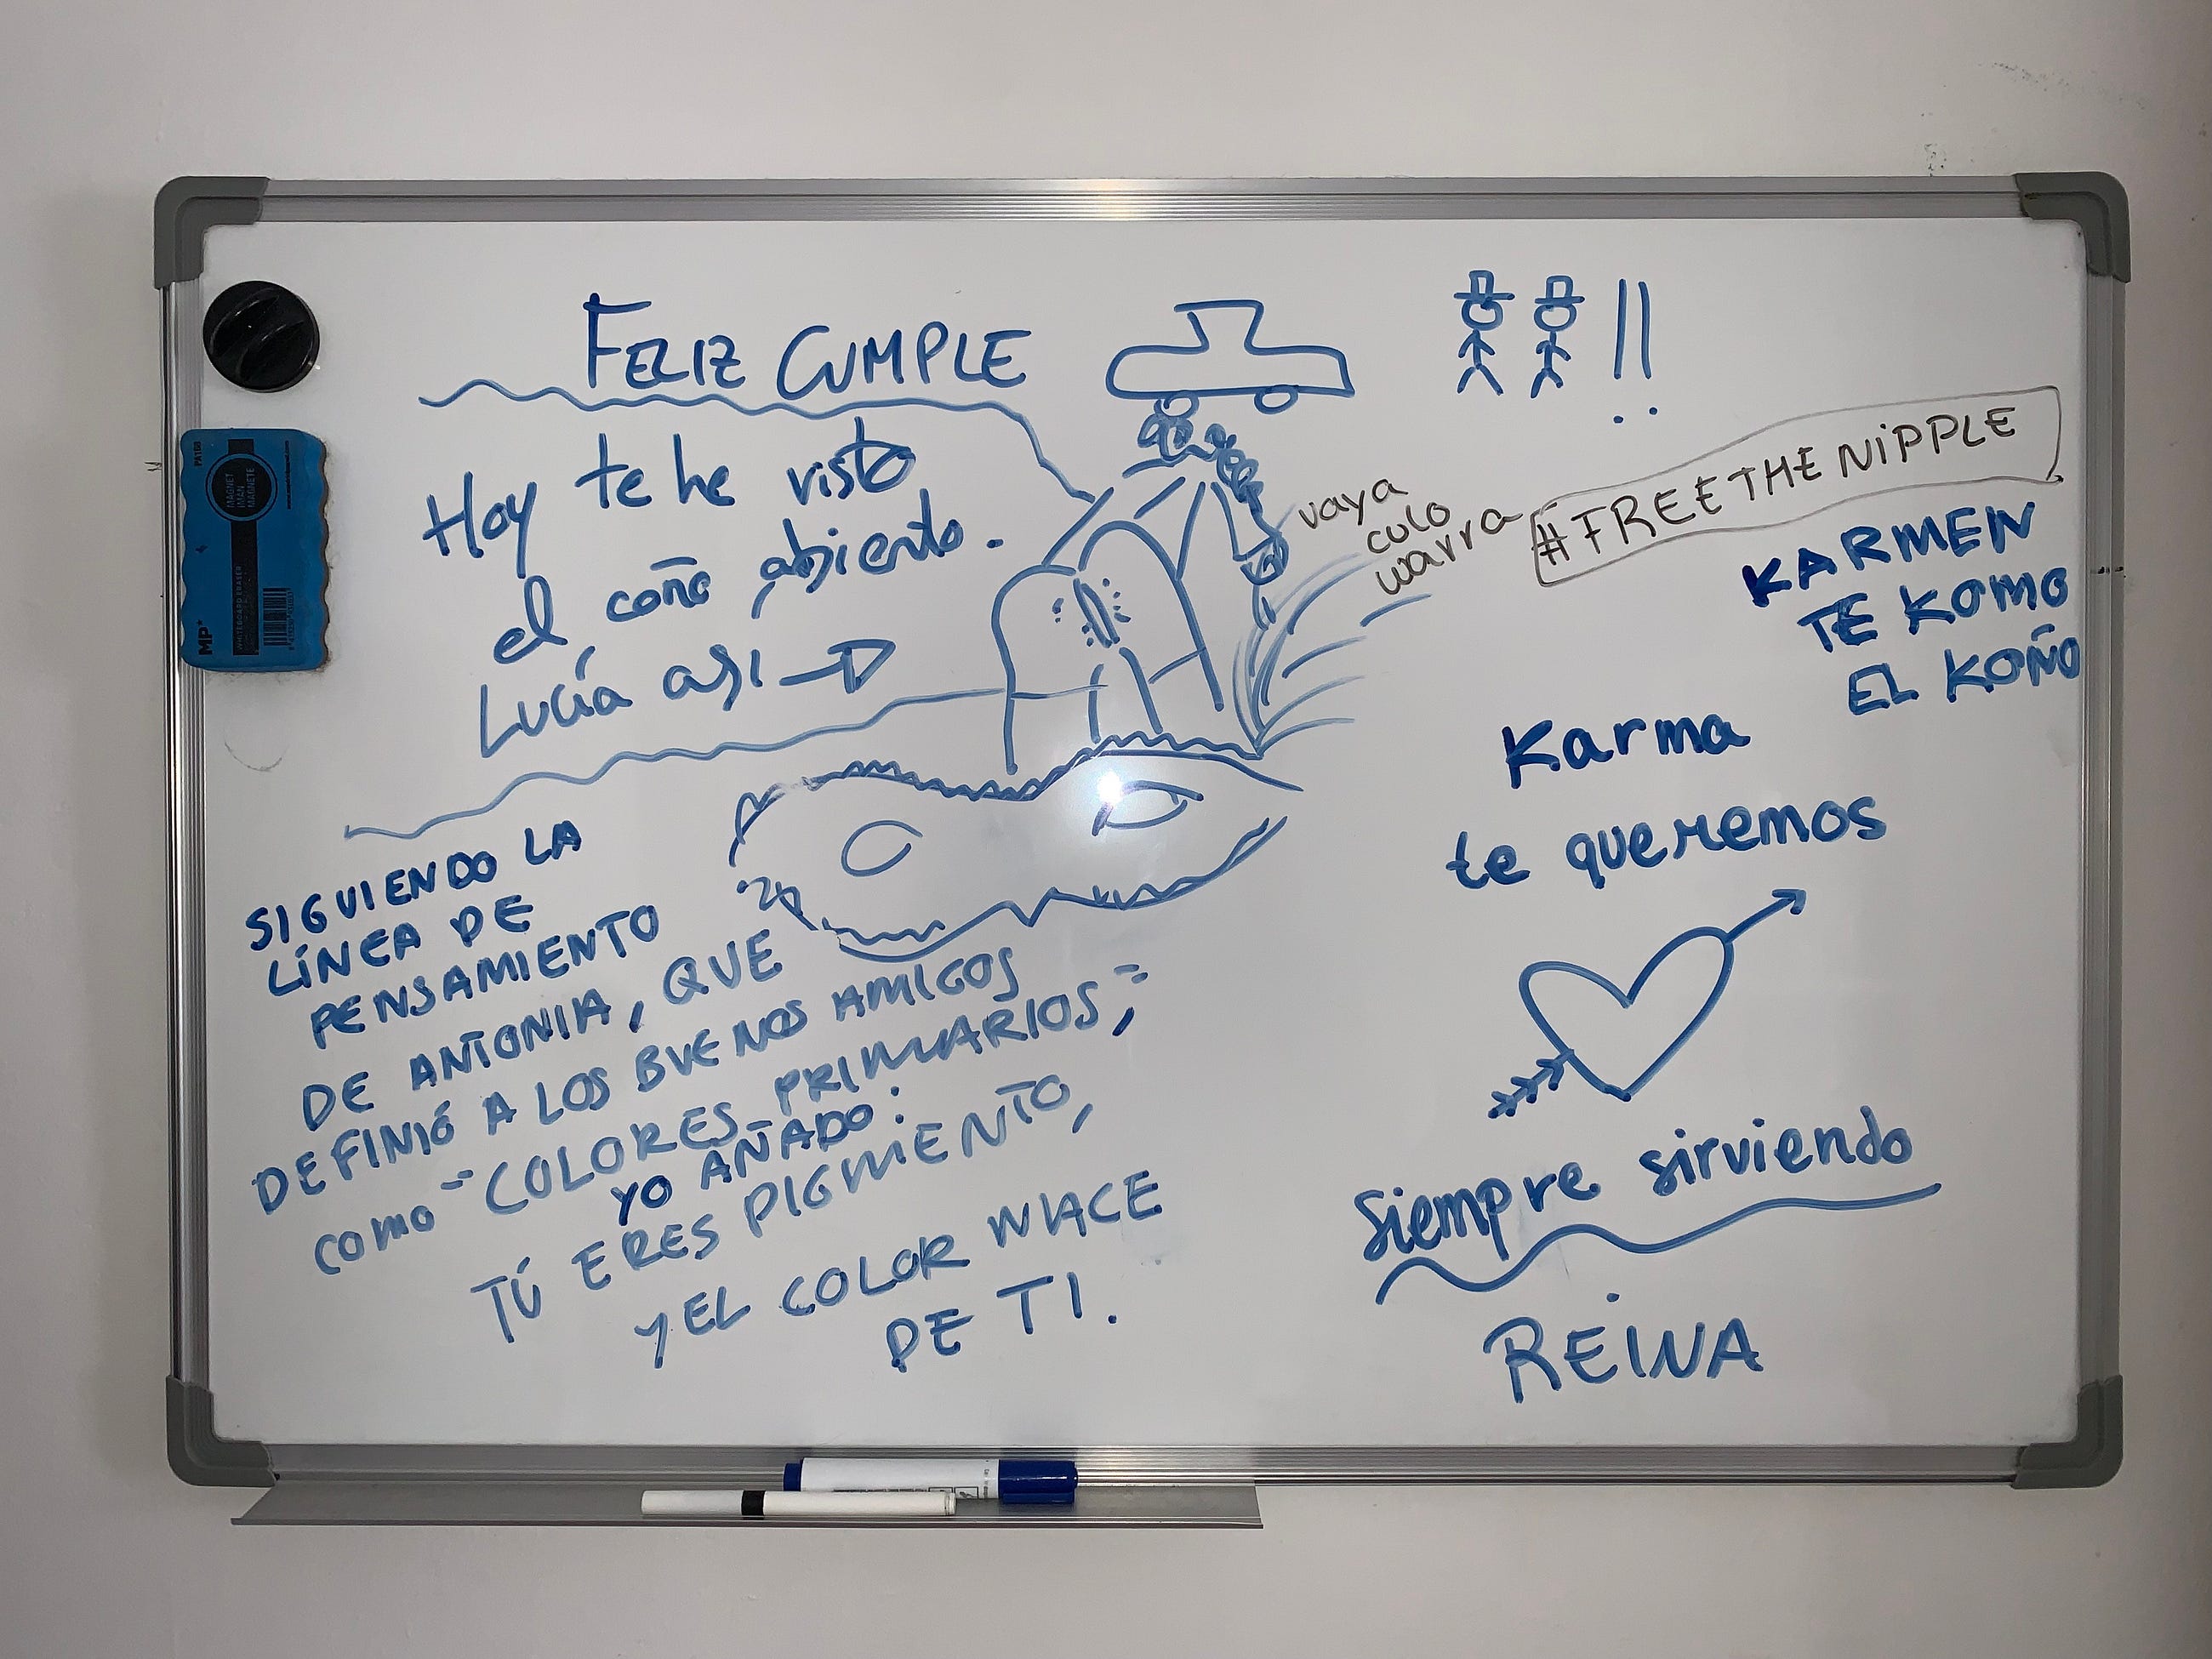 FELIZ CUMPLE !!
Hoy te he visto
el coño abierto.
Lucía así
vaya
culo
warra
#FREETHENiPPLE
KARMEN
TE KOMO
EL KOÑO
Karma
te queremos
Siempre sirviendo
REiNA
SIGUIENDO LA
LÍNEA DE
PENSAMIENTO
DE ANTONIA, QUE
DEFINIÓ A LOS BUENOS AMIGOS
COMO "COLORES PRIMARIOS",
YO AÑADO:
TÚ ERES PIGMENTO,
Y EL COLOR NACE
DE TI.
MAGNET
IMAN
MAGNETE
PA168
MP
WHITEBOARD ERASER